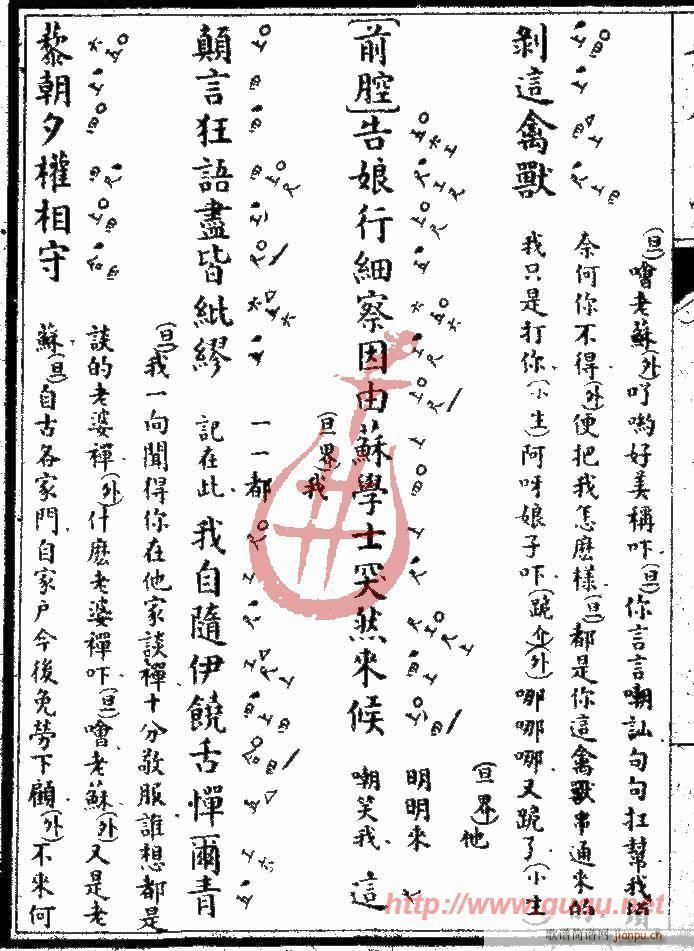 剝這禽獸
(旦)嚕老蘇(外)吖喲好美稱吓(旦)你言言嘲訕句句扛幫我
奈何你不得(外)便把我怎麽樣(旦)都是你這禽獸串通來的
我只是打你(小生)阿呀娘子吓(跪介)(外)哪哪哪又跪了(小生)
[前腔]告娘行細察因由蘇學士突然來候
(旦界)他
明明來
嘲笑我
這
(旦界)我
一一都
記在此
顛言狂語盡皆紕繆
我自隨伊饒舌憚爾青
(旦)我一向聞得你在他家談禪十分敬服誰想都是
談的老婆禪(外)什麽老婆禪吓(旦)嚕老蘇(外)又是老
蘇(旦)自古各家門自家户今後免勞下顧(外)不來何
藜朝夕權相守
http://www.guqu.net
歌谱简谱网 jianpu.cn